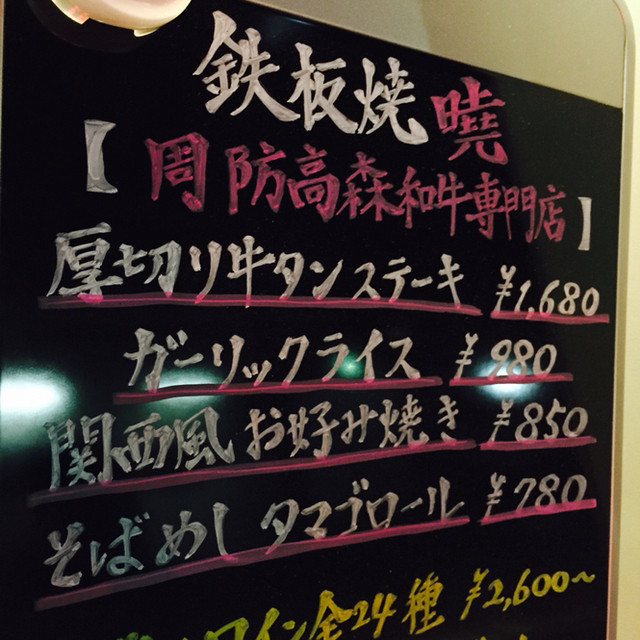 鉄板焼 曉
【周防高森和牛専門店】
厚切り牛タンステーキ ¥1,680
ガーリックライス ¥980
関西風お好み焼き ¥850
そばめしタマゴロール ¥780
ワイン全24種 ¥2,600〜